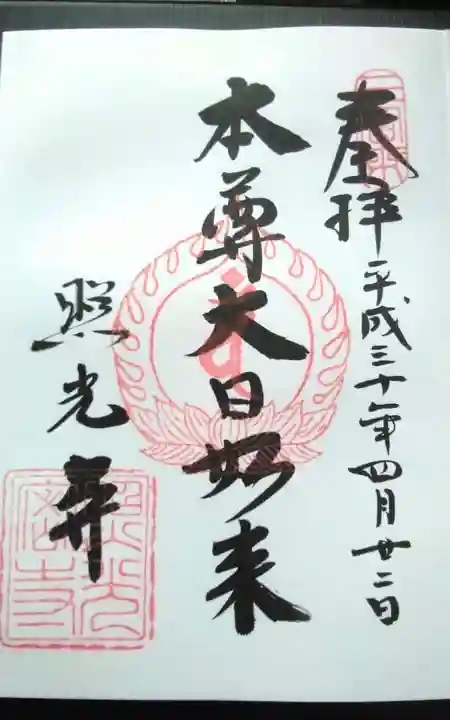 奉拝 平成三十年四月廿二日
本尊大日如来
照光